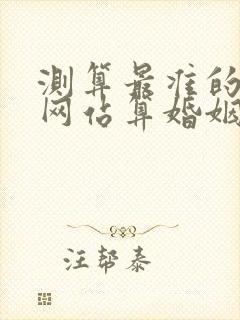 测算最准的
网占算婚姻
汪帮泰